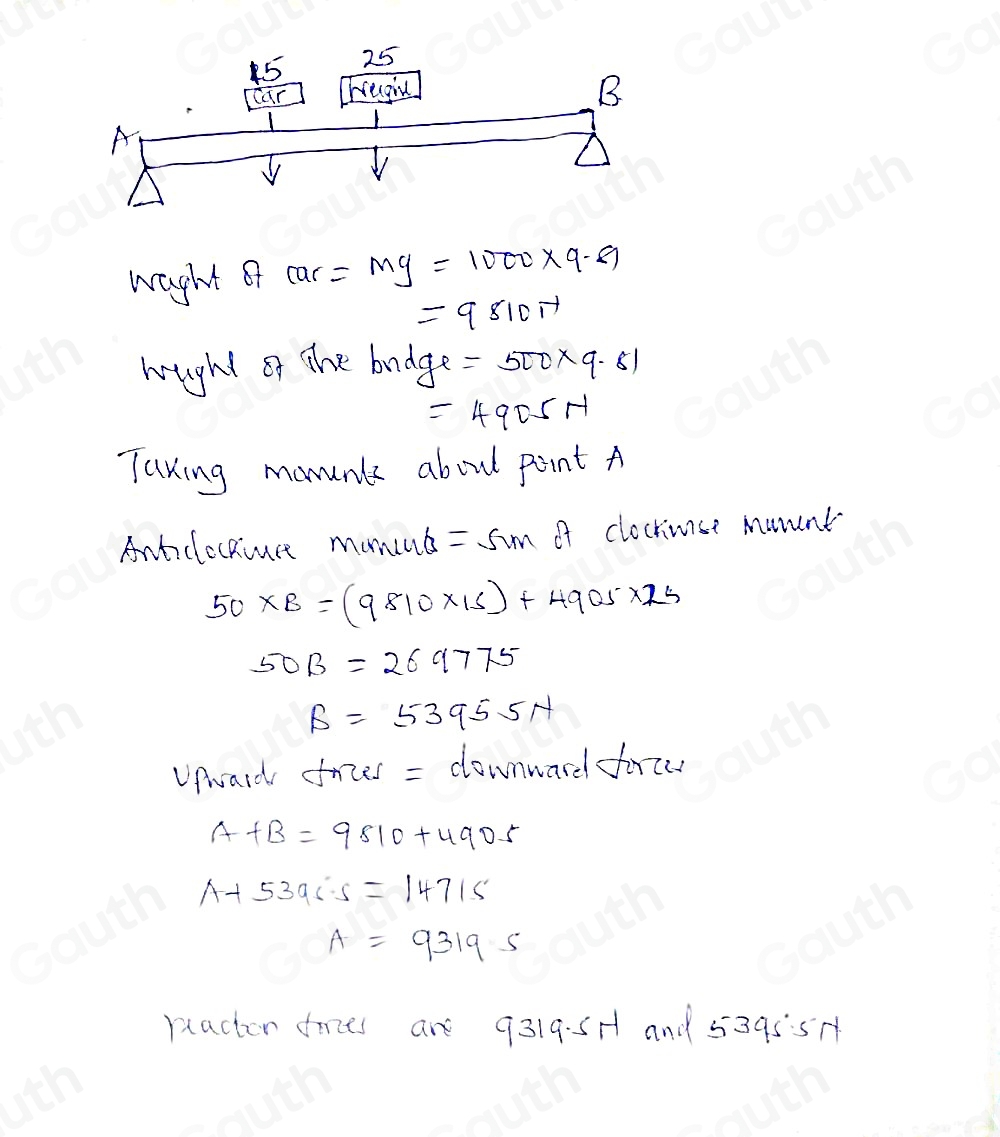 15 25
Car Weight
A B
weight of car = mg = 1000 × 9.81
= 9810 N
weight of The bridge = 500 × 9.81
= 4905 N
Taking moments about point A
Anticlockwise moments = sum of clockwise moment
50 × B = (9810 × 15) + 4905 × 25
50B = 269775
B = 5395.5 N
Upward forces = downward forces
A + B = 9810 + 4905
A + 5395.5 = 14715
A = 9319.5
reaction forces are 9319.5 N and 5395.5 N